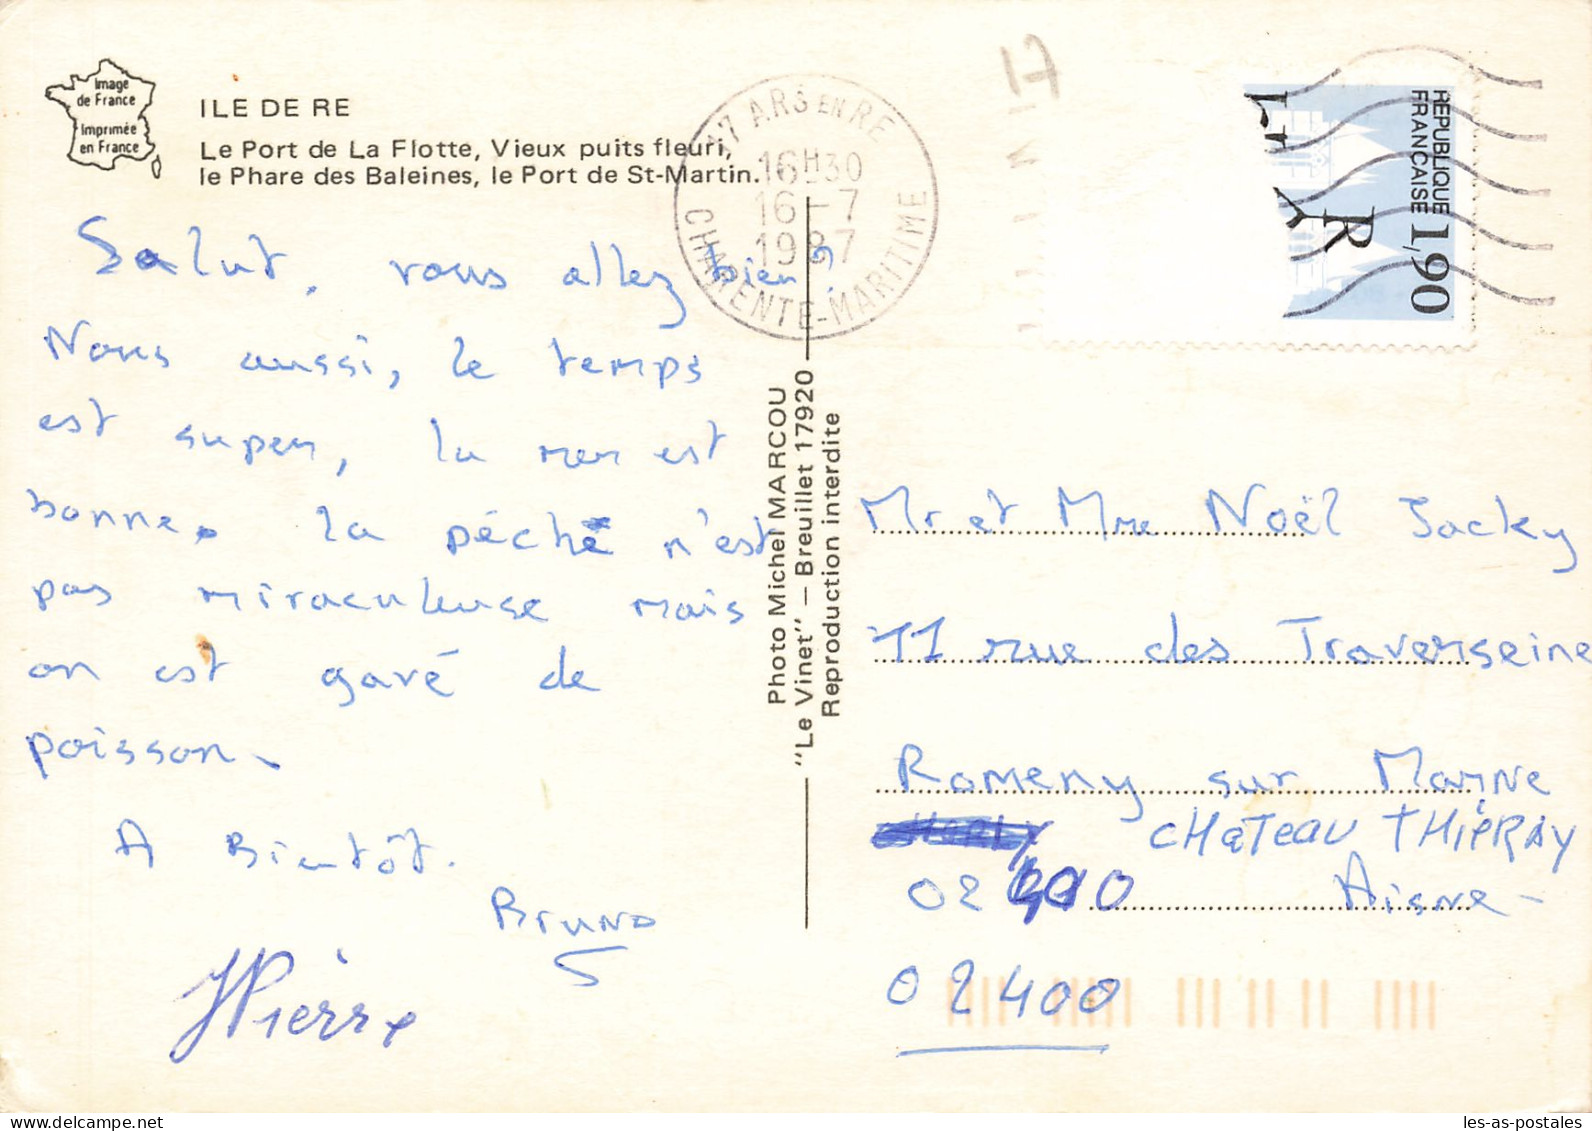 Image
de France
Imprimée
en France
ILE DE RE
Le Port de La Flotte, Vieux puits fleuri,
le Phare des Baleines, le Port de St-Martin.
17 ARS EN RE
16H30
16-7
1987
CHARENTE-MARITIME
17
REPUBLIQUE
FRANCAISE
1,90
R
Salut, vous allez bien?
Nous aussi, le temps
est super, la mer est
bonne, la pêche n'est
pas miraculeuse mais
on est gavé de
poisson.
A Bientôt.
Bruno
JPierre
Photo Michel MARCOU
"Le Vinet" - Breuillet 17920
Reproduction interdite
Mr et Mme Noël Jacky
11 rue des Traverseine
Romeny sur Marne
CHaTeau THiéRRy
02 0 Aisne-
02400
les-as-postales